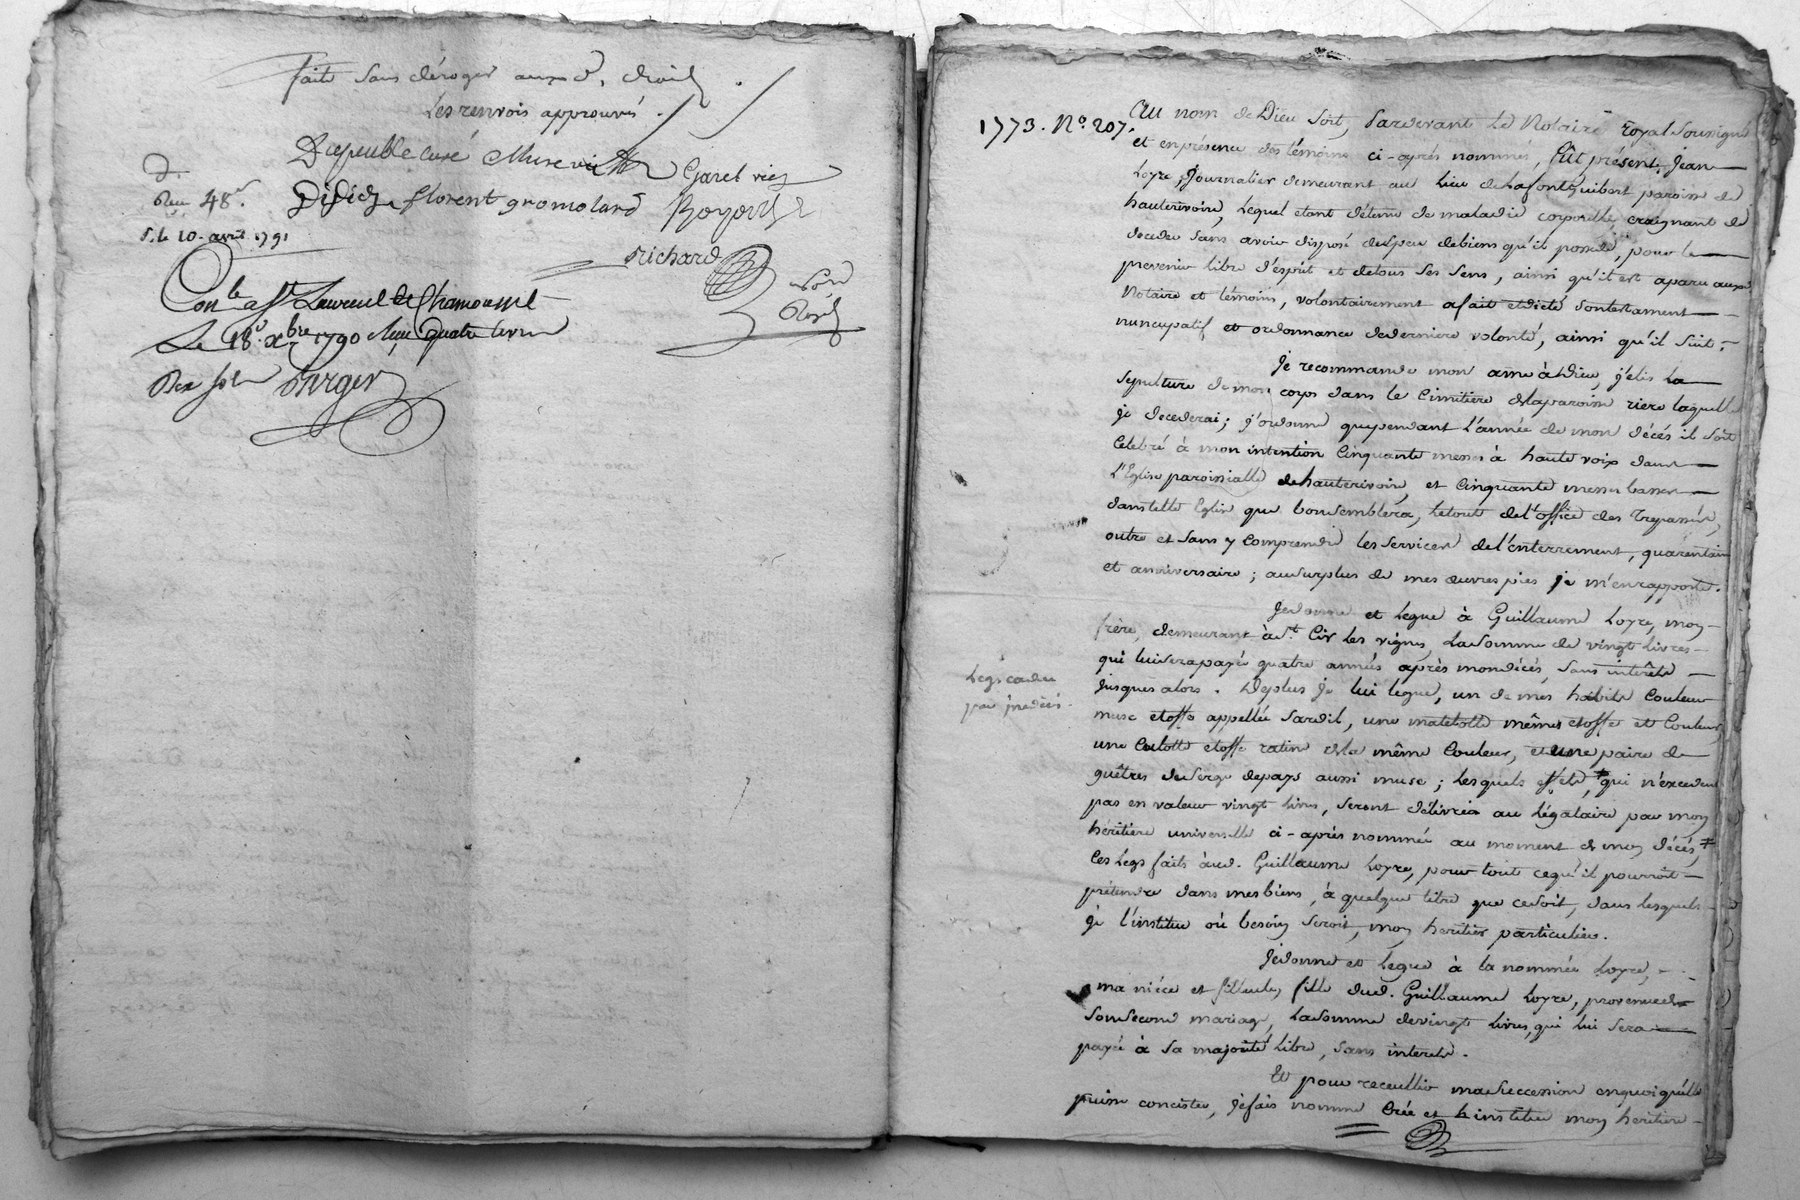 faite sans déroger aux d. droits.
les renvois approuvés.
curé Garel
Reçu 48s. Didier florent gromolard
S. le 10. avril 1791
Richard
Conlé à St Laurent de Chamousset
Le 18e. Xbre 1790 Reçu quatre livres
1773. No. 207. Au nom de Dieu soit, Pardevant Le Notaire royal soussigné
et en présence des témoins ci-après nommés, fût présent, Jean
Loyre, Journalier demeurant au lieu de Lafontquibert paroisse de
hauterivoire, Lequel etant détenu de maladie corporelle, craignant de
deceder sans avoir disposé du peu de biens qu'il possede, pour le
prevenir libre d'esprit et de tous ses sens, ainsi qu'il est aparu auxd.
Notaire et témoins, volontairement a fait et dicté son testament
nuncupatif et ordonnance de derniere volonté, ainsi qu'il suit;
Je recommande mon ame à Dieu, j'elis la
sepulture de mon corps dans le Cimitiere de la paroisse riere laquelle
je decederai; j'ordonne que pendant l'année de mon décés il soit
Celebré à mon intention Cinquante messes à haute voix dans
L'Eglise paroissialle de hauterivoire, et Cinquante messes basses
dans telle Eglise que bon semblera, le tout de l'office des Trepassés,
outre et sans y comprendre les services de l'enterrement, quarentaine
et anniversaire; au surplus de mes œuvres pies je m'en rapporte.
Je donne et Legue à Guillaume Loyre, mon
frère, demeurant à St. Cir les vignes, La somme de vingt livres
qui lui sera payée quatre années après mon décés, sans intérêts
Legs caduc
par prédécès.
jusques alors. Deplus je lui legue, un de mes habits Couleur
musc etoffe appellée Sardil, une matelotte même etoffe et Couleur,
une Culotte etoffe ratine de la même Couleur, et une paire de
guêtres de serge de pays aussi musc; Lesquels effets, qui n'excedent
pas en valeur vingt livres, seront délivrés au légataire par mon
héritiere universelle ci-après nommée au moment de mon décés,
Ces legs faits aud. Guillaume Loyre, pour tout ce qu'il pourroit
prétendre dans mes biens, à quelque titre que ce soit, dans lesquels
je l'institue où besoin seroit, mon heritier particulier.
Je donne et Legue à la nommée Loyre,
ma niéce et filleule, fille dud. Guillaume Loyre, provenue de
son Second mariage, La somme de vingt livres, qui lui sera
payée à sa majorité libre, sans interets.
Et pour receuillir ma Succession en quoi qu'elle
puisse concister, je fais nomme Crée et institue mon heritiere